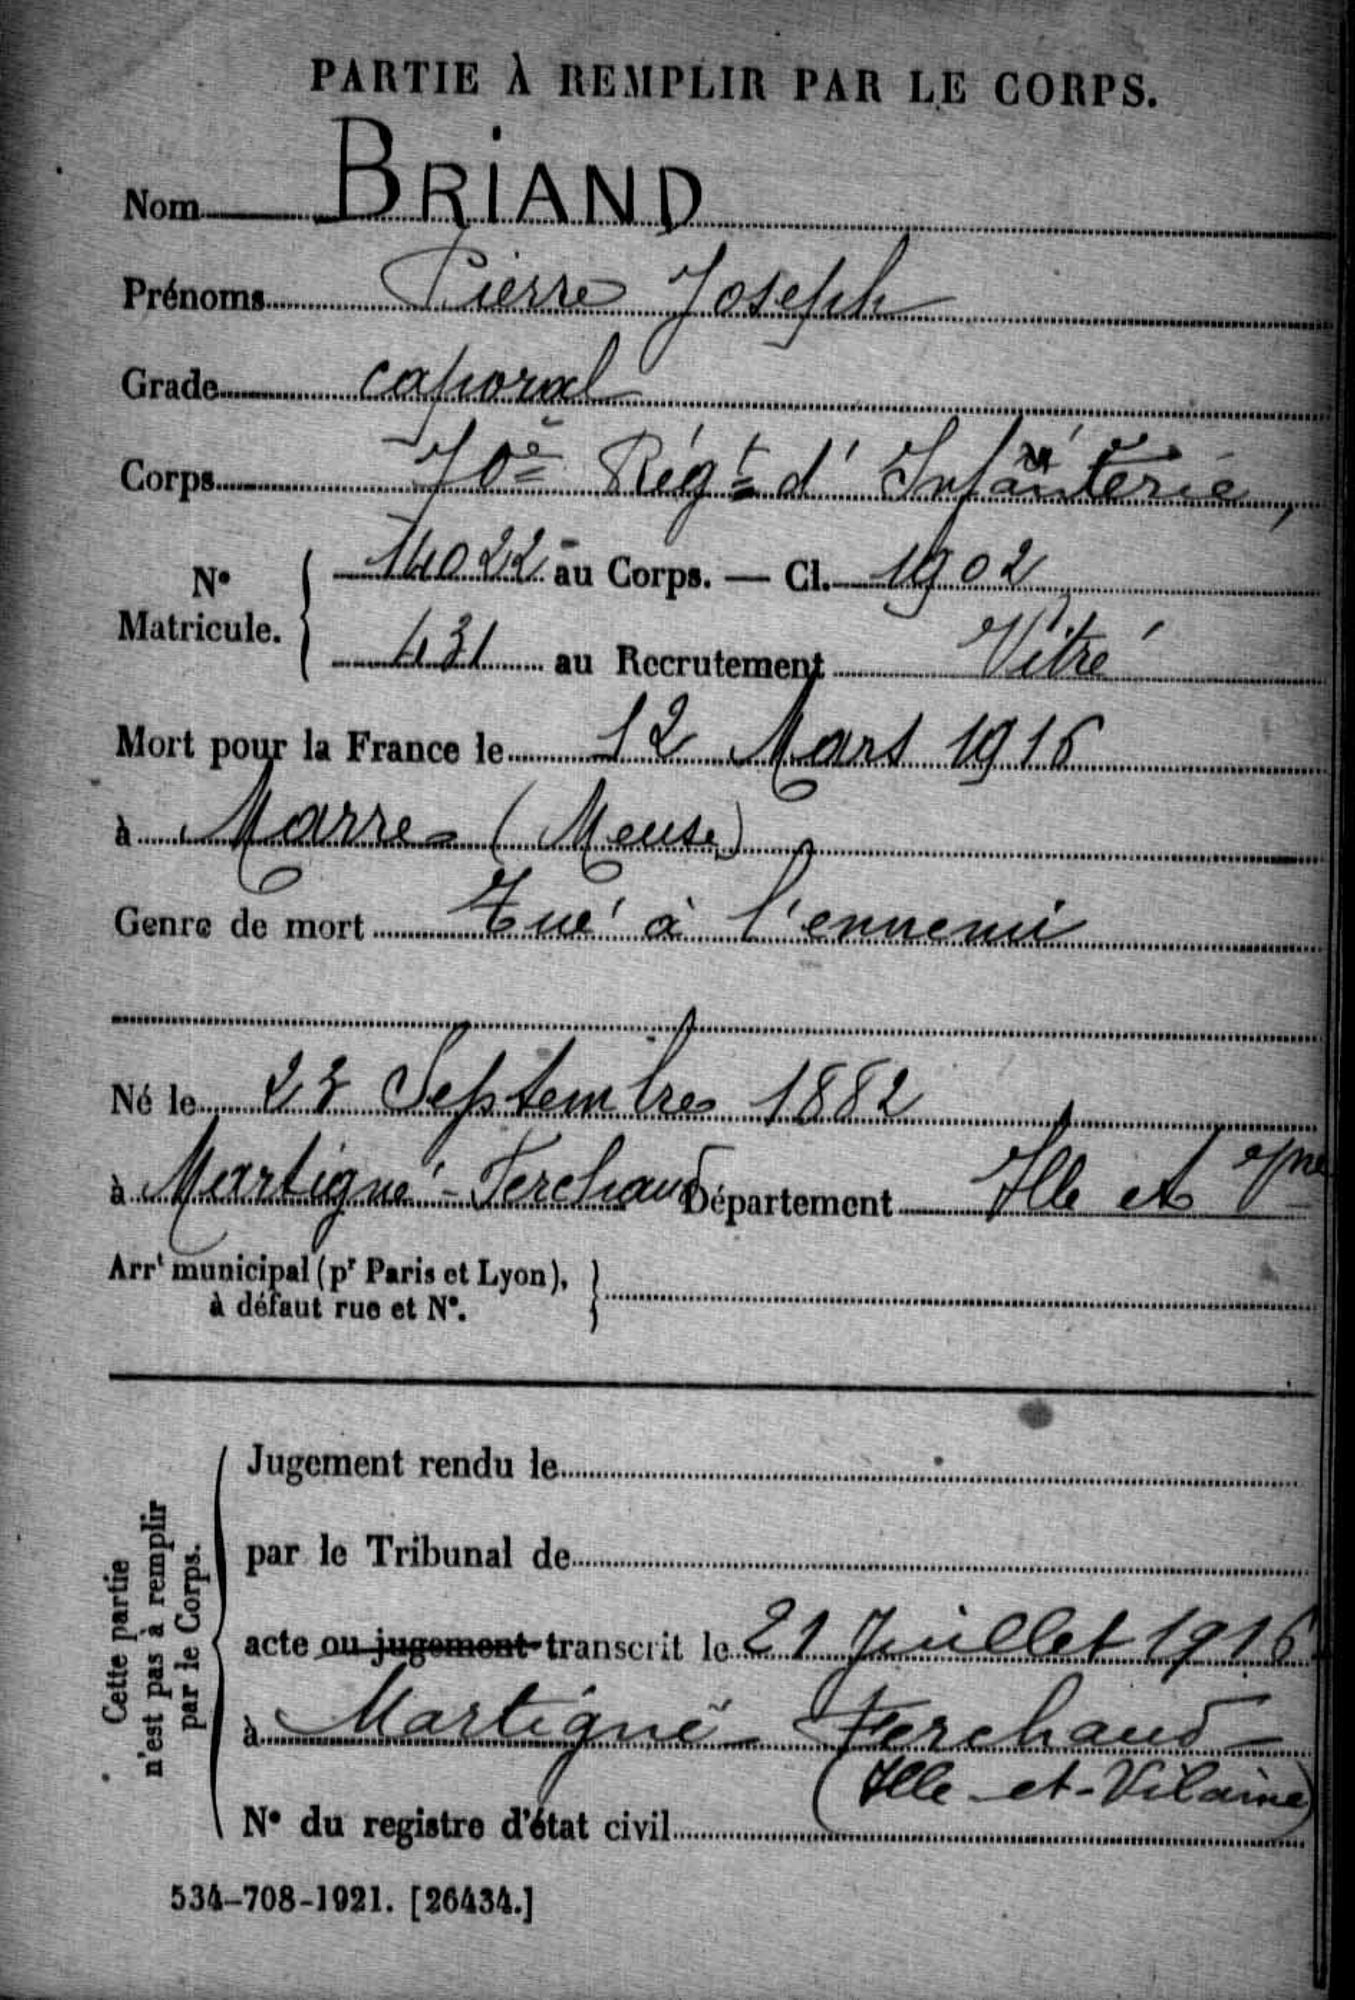 PARTIE À REMPLIR PAR LE CORPS.
Nom BRIAND
Prénoms Pierre Joseph
Grade caporal
Corps 70e Régt d'Infanterie,
N° Matricule. 14022 au Corps. — Cl. 1902
431 au Recrutement Vitré
Mort pour la France le 12 Mars 1916
à Marre (Meuse)
Genre de mort Tué à l'ennemi
Né le 23 Septembre 1882
à Martigné-Ferchaud Département Ille et Vne
Arrt municipal (pr Paris et Lyon),
à défaut rue et N°.
Cette partie
n'est pas à remplir
par le Corps.
Jugement rendu le
par le Tribunal de
acte ou jugement transcrit le 21 Juillet 1916
à Martigné-Ferchaud
(Ille-et-Vilaine)
N° du registre d'état civil
534-708-1921. [26434.]